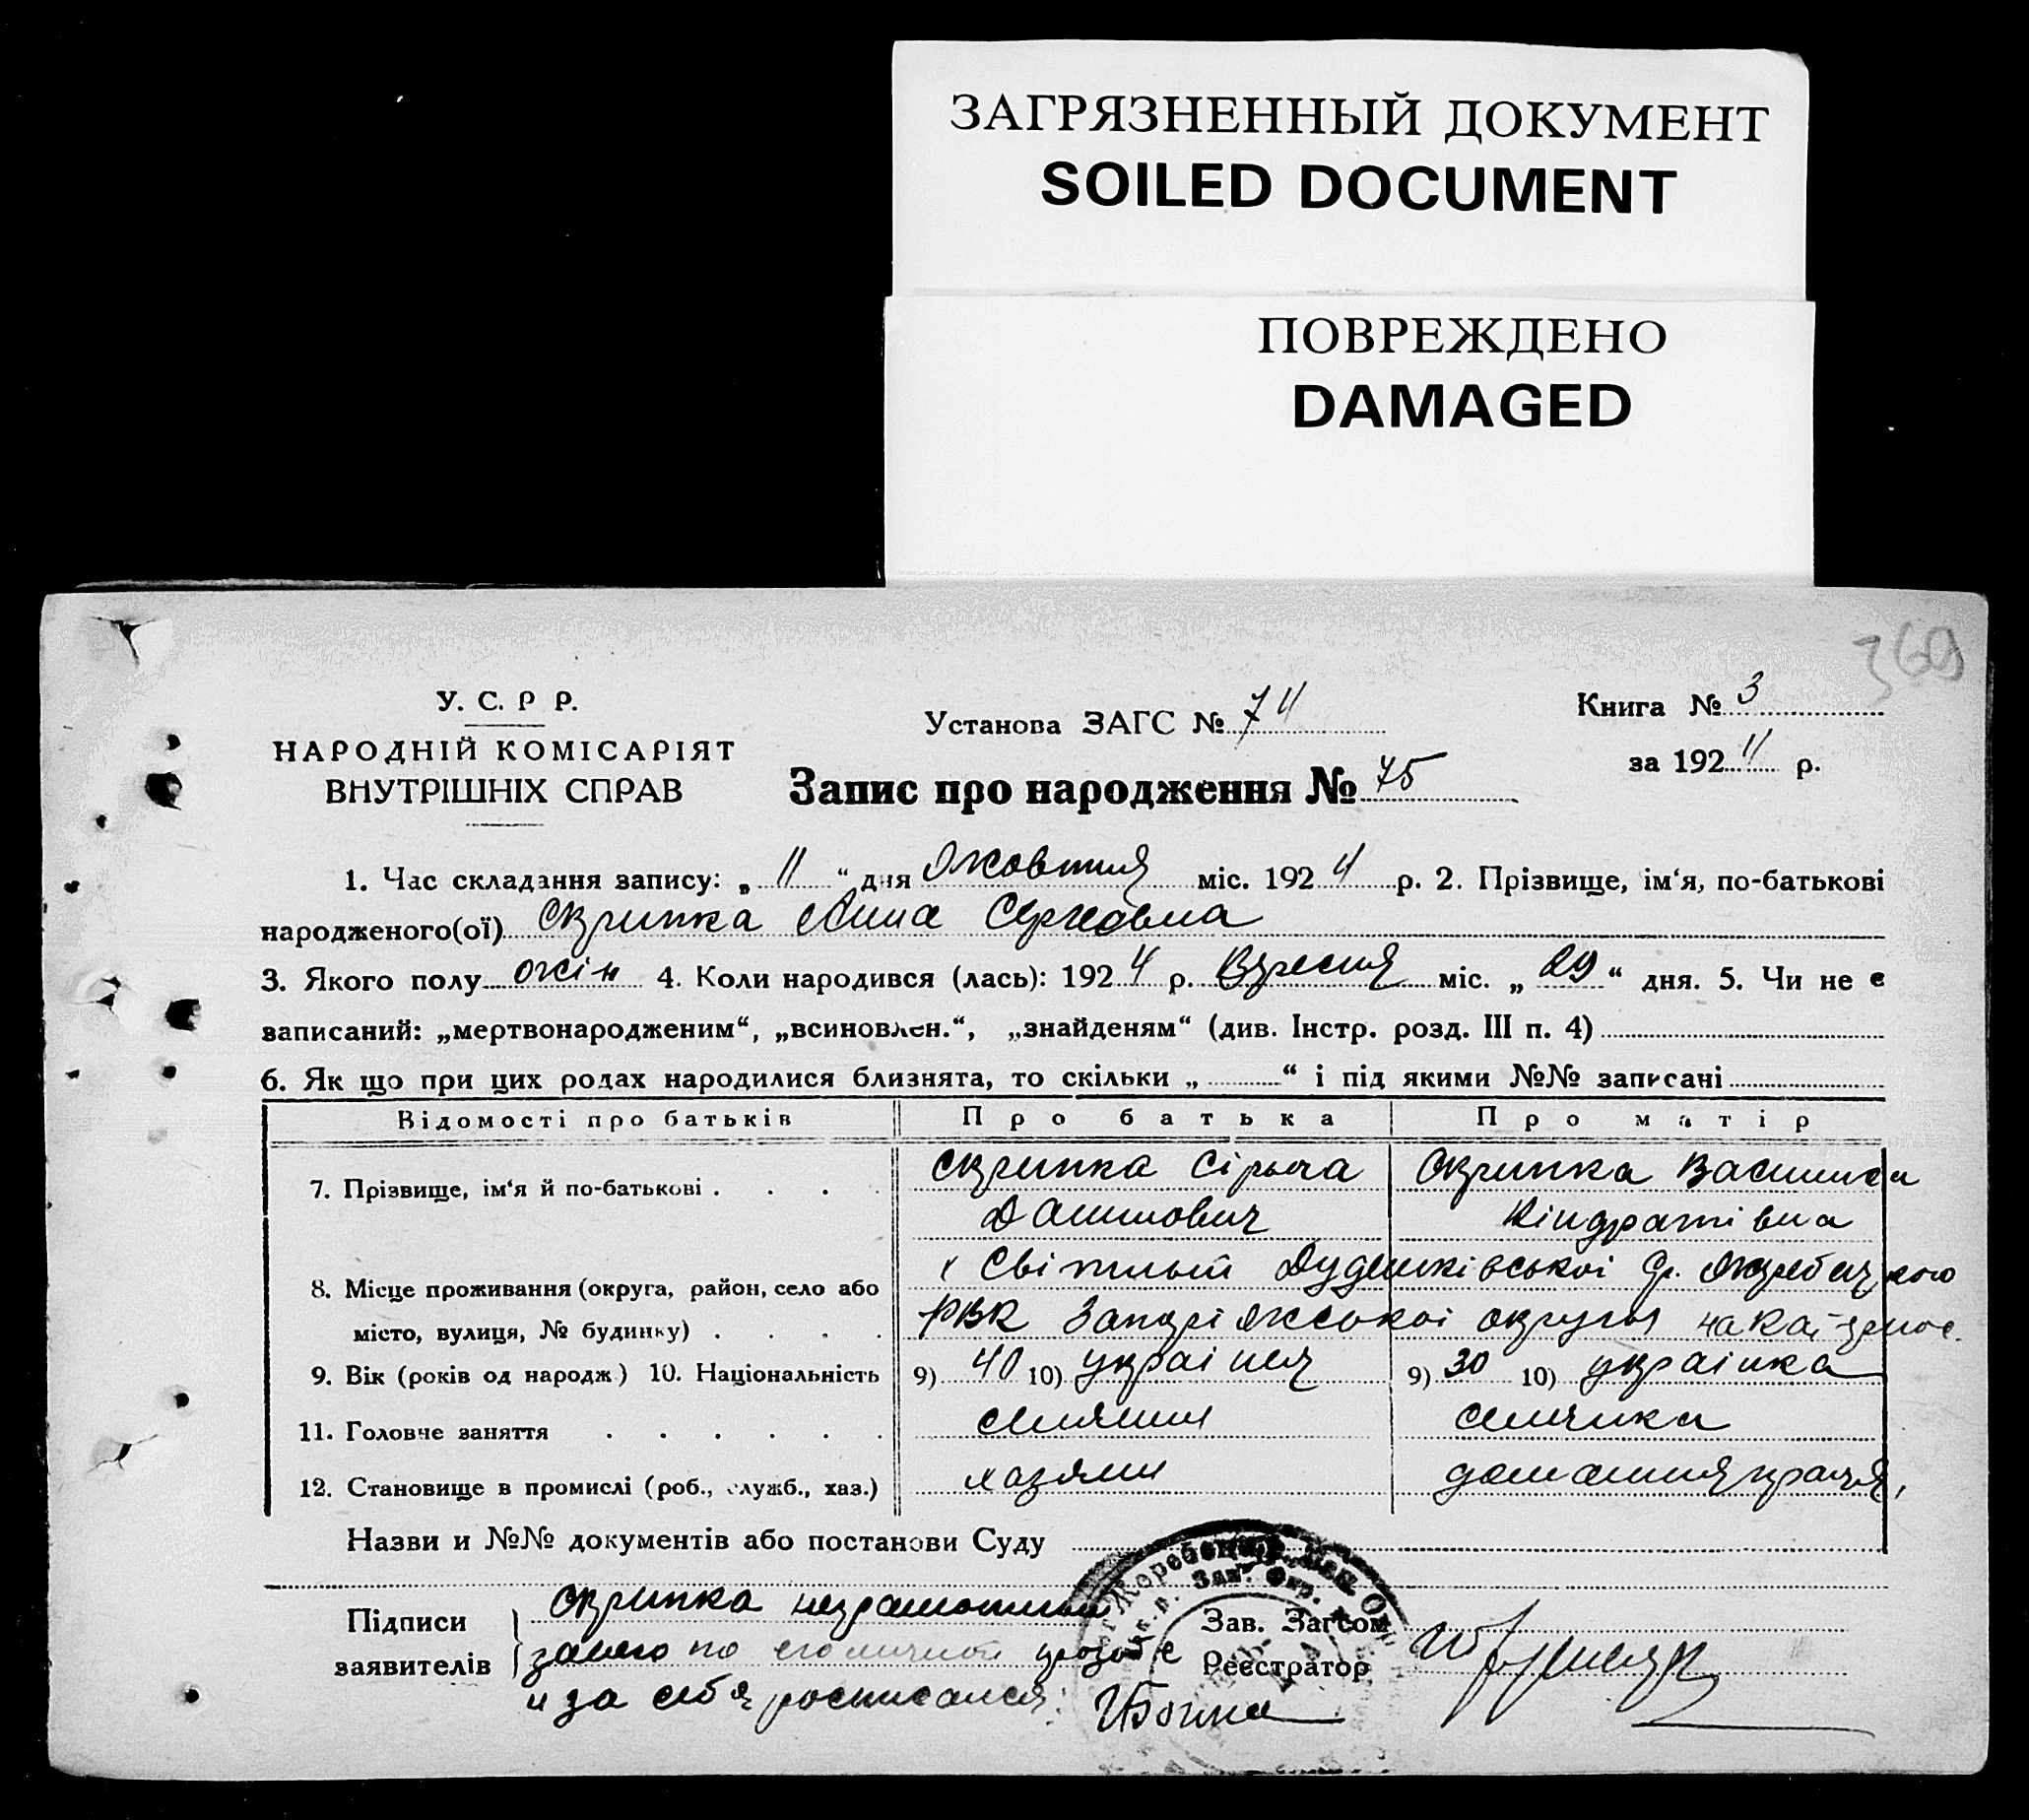 ЗАГРЯЗНЕННЫЙ ДОКУМЕНТ
SOILED DOCUMENT
ПОВРЕЖДЕНО
DAMAGED
369
У. С. Р Р.
НАРОДНІЙ КОМІСАРІЯТ
ВНУТРІШНІХ СПРАВ
Установа ЗАГС № 74
Запис про народження № 75
Книга № 3
за 1924 р.
1. Час складання запису: „ 11 “ дня Жовтня міс. 1924 р. 2. Прізвище, ім‘я, по-батькові
народженого(ої) Скрипка Анна
3. Якого полу жін 4. Коли народився (лась): 1924 р. Вересня міс. „ 29 “ дня. 5. Чи не є
записаний: „мертвонародженим“, „всиновлен.“, „знайденям“ (див. Інстр. розд. III п. 4)
6. Як що при цих родах народилися близнята, то скільки „ “ і під якими №№ записані
Відомості про батьків Про батька Про матір
7. Прізвище, ім‘я й по-батькові . . . . Скрипка Скрипка
Кіндратівна
8. Місце проживання (округа, район, село або х
місто, вулиця, № будинку) . . . . РВК Запоріжської округи
9. Вік (років од народж) 10. Національність 9) 40 10) українец 9) 30 10) українка
11. Головне заняття . . . . . . селянин селянка
12. Становище в промислі (роб., служб., хаз.) хазяин домашня праця
Назви и №№ документів або постанови Суду
Підписи
заявителів
Скрипка неграмотный
занего по его личной прозбе
и за себя росписался
Зав. Загсом
Реєстратор